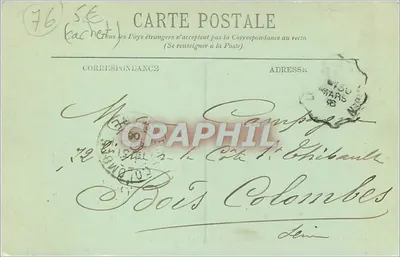 76
5€
CARTE POSTALE
Tous les Pays étrangers n'acceptent pas la Correspondance au recto
(Se renseigner à la Poste)
CORRESPONDANCE ADRESSE
30
MARS
M Campagne
DELPHIL
72 de la Côte St Thibault
Bois Colombes
Seine